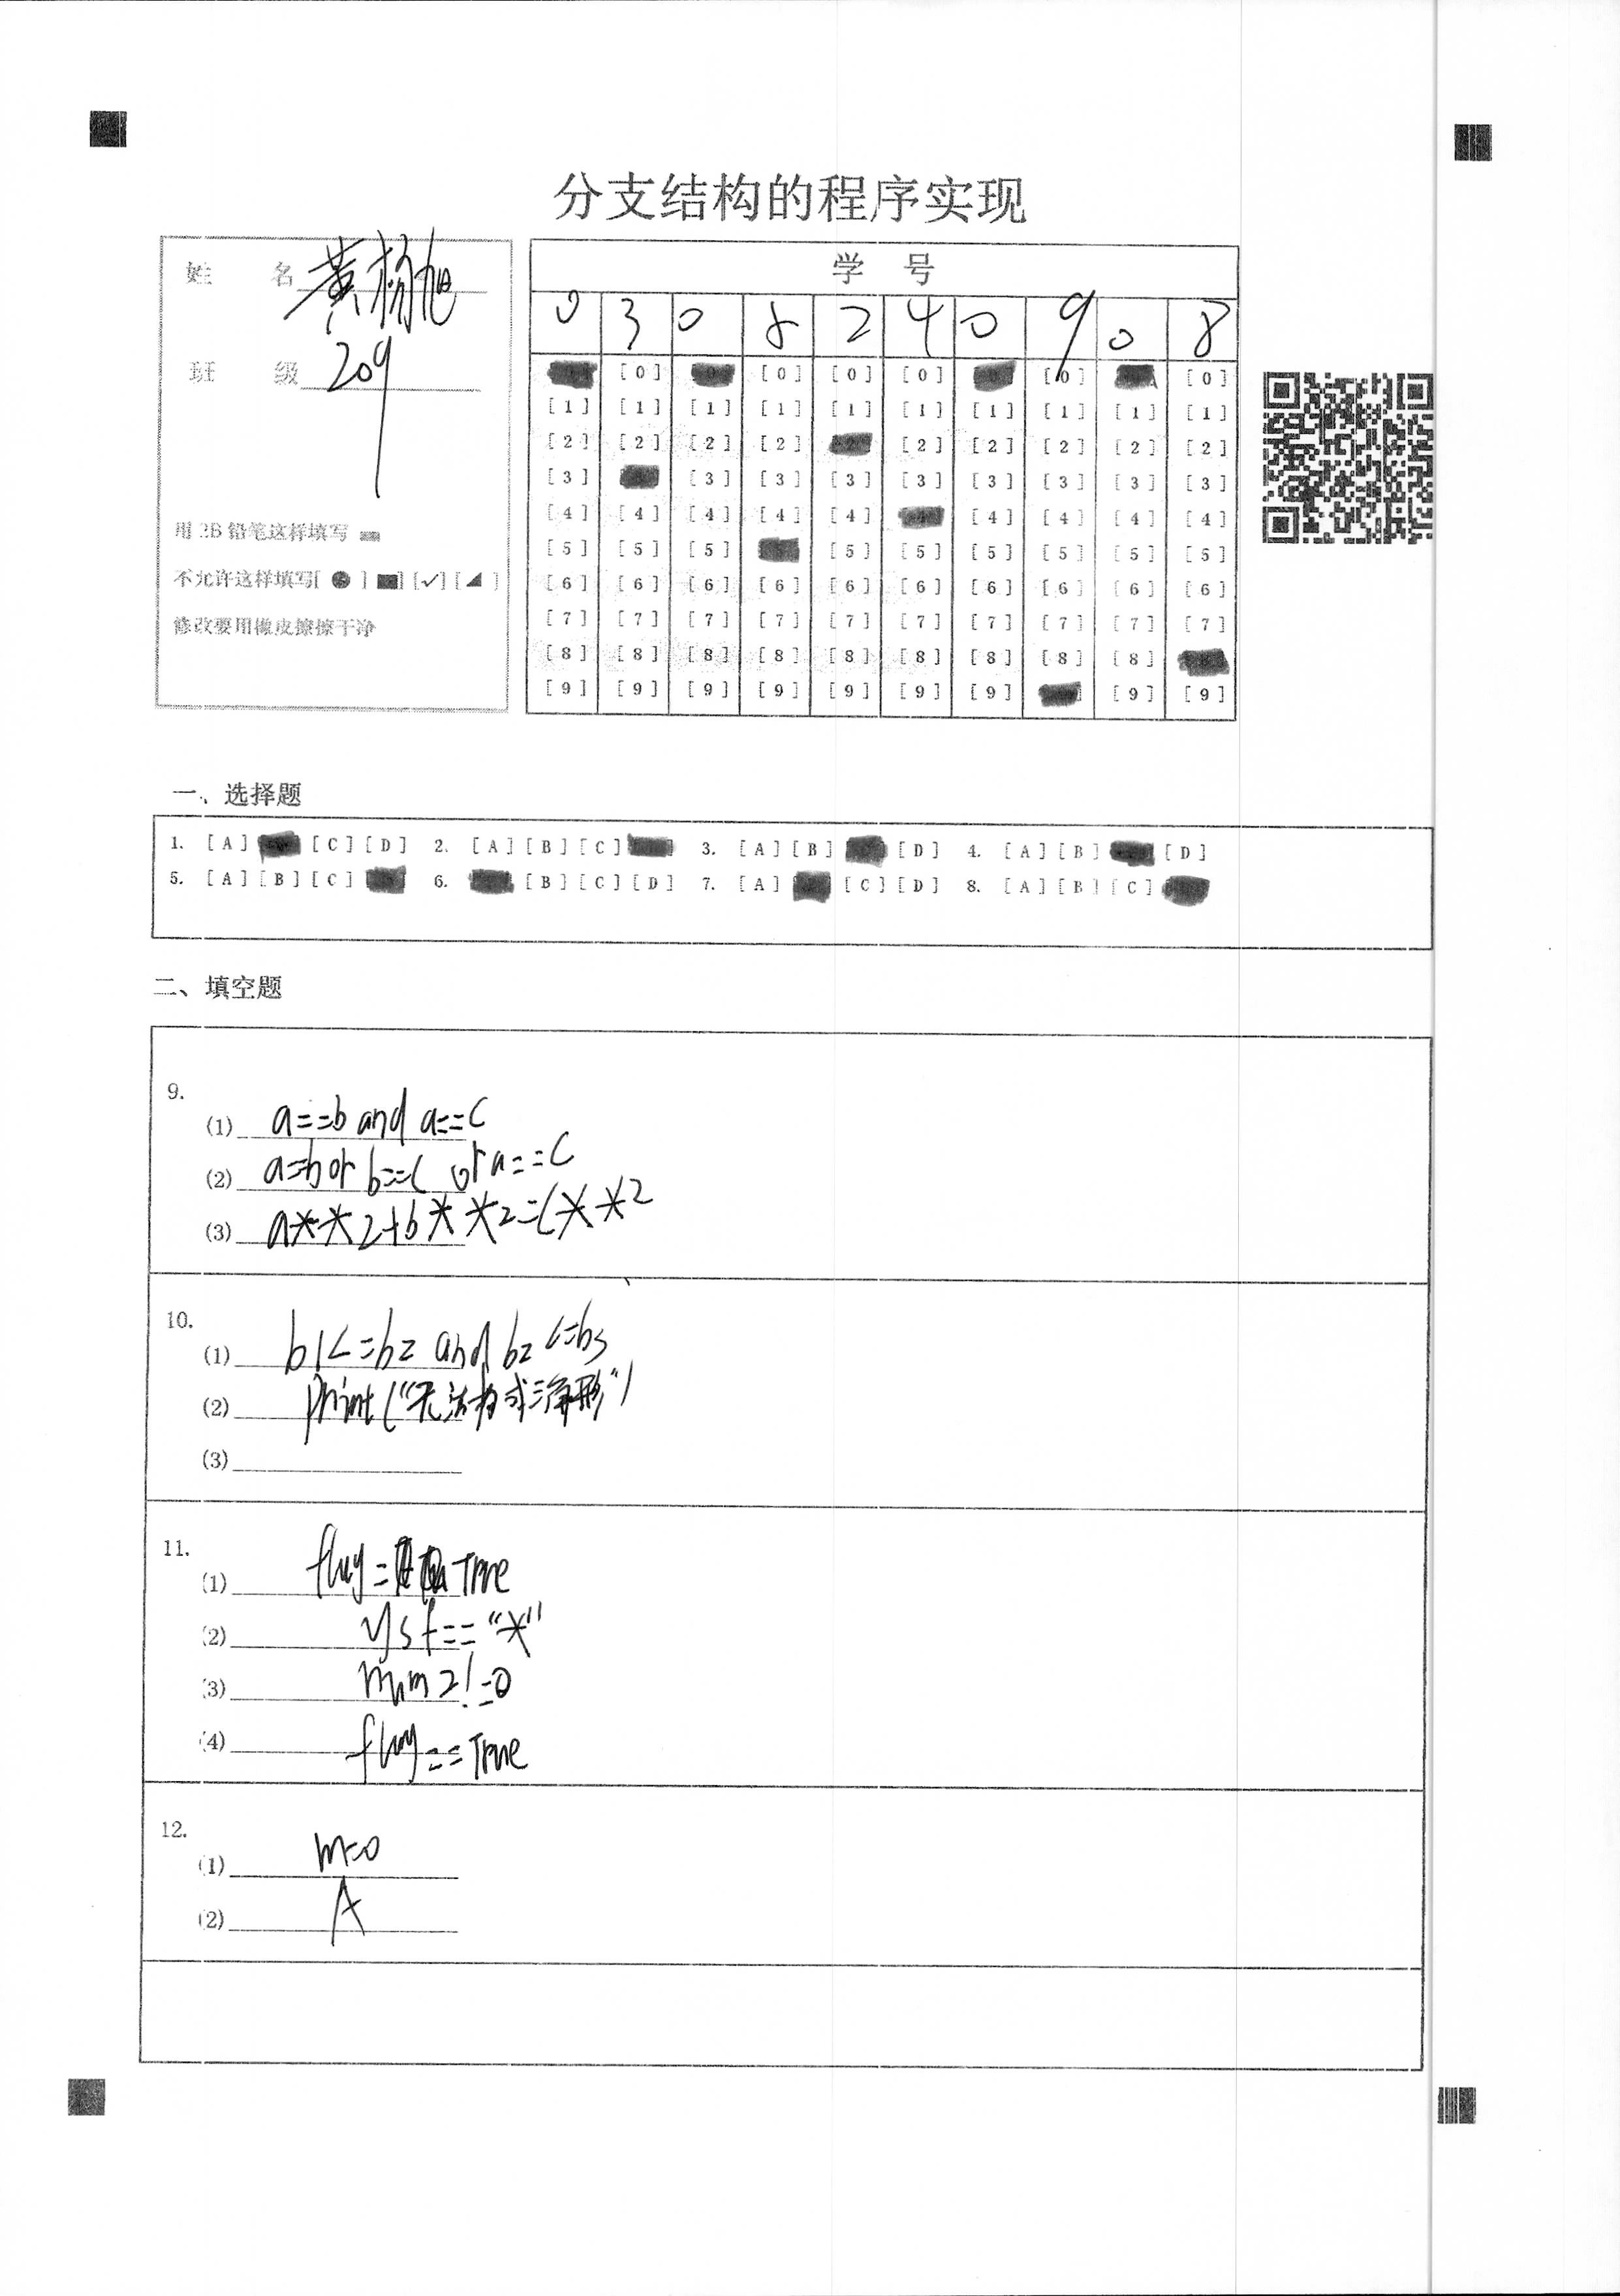 分支结构的程序实现
姓 名 黄杨旭
班 级 209
用2B铅笔这样填写
不允许这样填写[ ● ] ■] [✓] [◢ ]
修改要用橡皮擦擦干净
学 号
0 3 0 5 2 4 0 9 0 8
[0] [0] [0] [0] [0] [0]
[1] [1] [1] [1] [1] [1] [1] [1] [1] [1]
[2] [2] [2] [2] [2] [2] [2] [2] [2]
[3] [3] [3] [3] [3] [3] [3] [3] [3]
[4] [4] [4] [4] [4] [4] [4] [4] [4]
[5] [5] [5] [5] [5] [5] [5] [5] [5]
[6] [6] [6] [6] [6] [6] [6] [6] [6] [6]
[7] [7] [7] [7] [7] [7] [7] [7] [7] [7]
[8] [8] [8] [8] [8] [8] [8] [8] [8]
[9] [9] [9] [9] [9] [9] [9] [9] [9]
一、选择题
1. [A] [C] [D] 2. [A] [B] [C] 3. [A] [B] [D] 4. [A] [B] [D]
5. [A] [B] [C] 6. [B] [C] [D] 7. [A] [C] [D] 8. [A] [B] [C]
二、填空题
9.
(1) a==b and a==c
(2) a=b or b==c or a==c
(3) a**2+b**2=c**2
10.
(1) b1<=b2 and b2<=b3
(2) print("无法构成三角形")
(3)
11.
(1) flag= True
(2) ysf=="*"
(3) num2!=0
(4) flag==True
12.
(1) m=0
(2) A